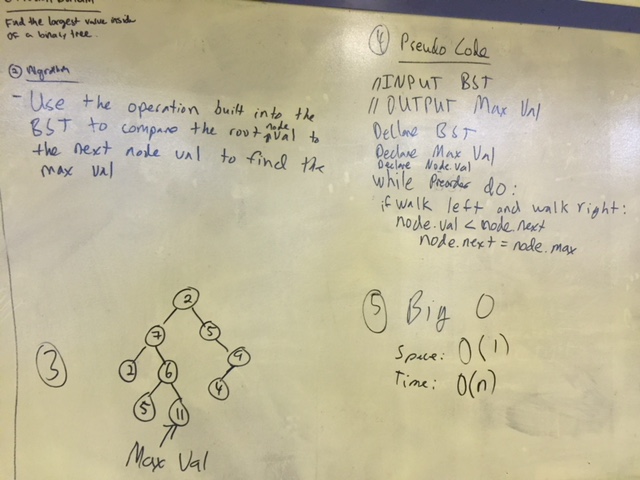 Find the largest value inside
of a binary tree.
② Algorithm
- Use the operation built into the
BST to compare the root node val to
the next node val to find the
max val
③
2
7 5
2 6 9
5 11 4
Max Val
④ Pseudo Code
// INPUT BST
// OUTPUT Max Val
Declare BST
Declare Max Val
Declare Node.val
while Preorder do:
if walk left and walk right:
node.val < node.next
node.next = node.max
⑤ Big O
Space: O(1)
Time: O(n)